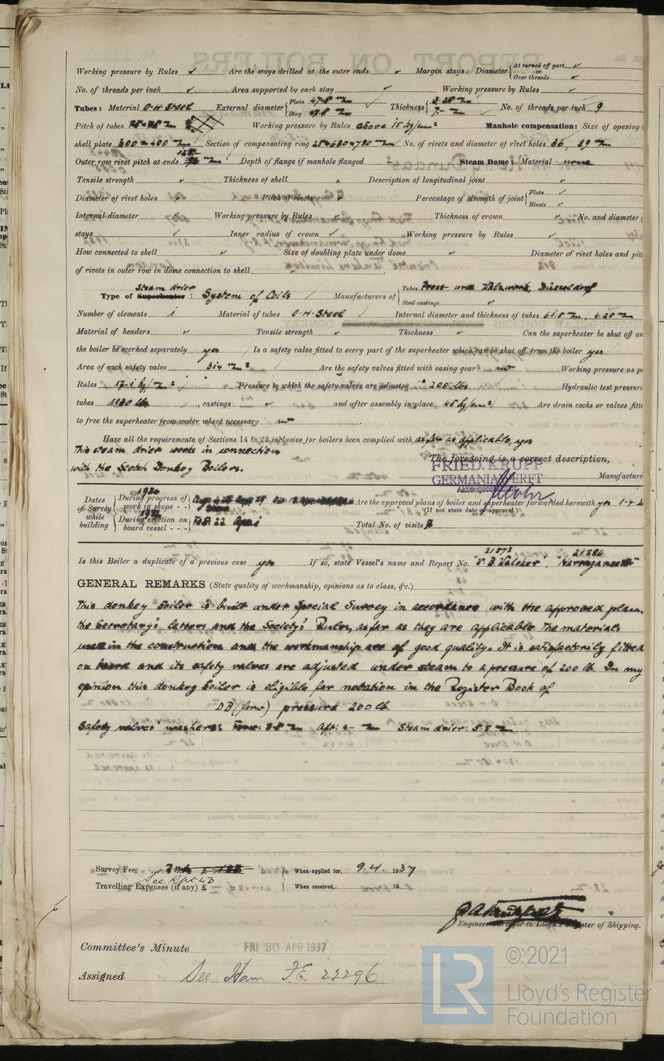 Working pressure by Rules ✓ Are the stays drilled at the outer ends ✓ Margin stays: Diameter { At turned off part, ✓ Over threads ✓
No. of threads per inch ✓ Area supported by each stay ✓ Working pressure by Rules ✓
Tubes: Material O·H·Steel External diameter { Plain Stay Thickness { No. of threads per inch 9
Pitch of tubes Working pressure by Rules above 15 kg/cm² Manhole compensation: Size of opening
shell plate 300×400 m/m Section of compensating ring No. of rivets and diameter of rivet holes 36, 29 m/m
Outer row rivet pitch at ends Depth of flange if manhole flanged Steam Dome: Material none
Tensile strength ✓ Thickness of shell ✓ Description of longitudinal joint ✓
Diameter of rivet holes ✓ Pitch of rivets ✓ Percentage of strength of joint { Plate ✓ Rivets ✓
Internal diameter ✓ Working pressure by Rules Thickness of crown ✓ No. and diameter
stays ✓ Inner radius of crown ✓ Working pressure by Rules ✓
How connected to shell ✓ Size of doubling plate under dome ✓ Diameter of rivet holes and pitch
of rivets in outer row in dome connection to shell ✓
Steam drier
Type of Superheater System of Coils Manufacturers of { Tubes Press und Walzwerk, Düsseldorf Steel castings
Number of elements 1 Material of tubes O·H·Steel Internal diameter and thickness of tubes
Material of headers ✓ Tensile strength ✓ Thickness ✓ Can the superheater be shut off and
the boiler be worked separately yes Is a safety valve fitted to every part of the superheater which can be shut off from the boiler yes
Area of each safety valve 314 m/m² Are the safety valves fitted with easing gear no Working pressure as per
Rules 17·1 kg/m² Pressure to which the safety valves are adjusted 200 lbs Hydraulic test pressure
tubes lbs castings and after assembly in place 45 kg/cm² Are drain cocks or valves fitted
to free the superheater from water where necessary no
Have all the requirements of Sections 14 to 22 inclusive for boilers been complied with as far as applicable, yes
This steam drier works in connection
with the Scotch Donkey Boilers.
The foregoing is a correct description,
FRIED. KRUPP
GERMANIAWERFT
Aktiengesellschaft
Manufacturer
Dates of Survey while building { During progress of work in shops - - 1936 During erection on board vessel - - - 1937 Feb 22 April
Are the approved plans of boiler and superheater forwarded herewith yes
(If not state date of approval.)
Total No. of visits
Is this Boiler a duplicate of a previous case yes If so, state Vessel's name and Report No. 21878 21886 Narragansett
GENERAL REMARKS (State quality of workmanship, opinions as to class, &c.)
This donkey boiler is built under Special Survey in accordance with the approved plan,
the Secretary's letters and the Society's Rules, as far as they are applicable. The materials
used in the construction and the workmanship are of good quality. It is satisfactorily fitted
on board and its safety valves are adjusted under steam to a pressure of 200 lb. In my
opinion this donkey boiler is eligible for notation in the Register Book of
DB (forw) pressure 200 lb
Safety valves' washers: Forw: 3·8 m/m Aft: 4·- m/m Steam drier: 5·8 m/m
Survey Fee When applied for, 9.4.1937
See Rpt 4B
Travelling Expenses (if any) £ : : When received, 19
Engineer Surveyor to Lloyd's Register of Shipping.
Committee's Minute FRI 30 APR 1937
Assigned See Ham F.E. 22296
LR © 2021
Lloyd's Register
Foundation